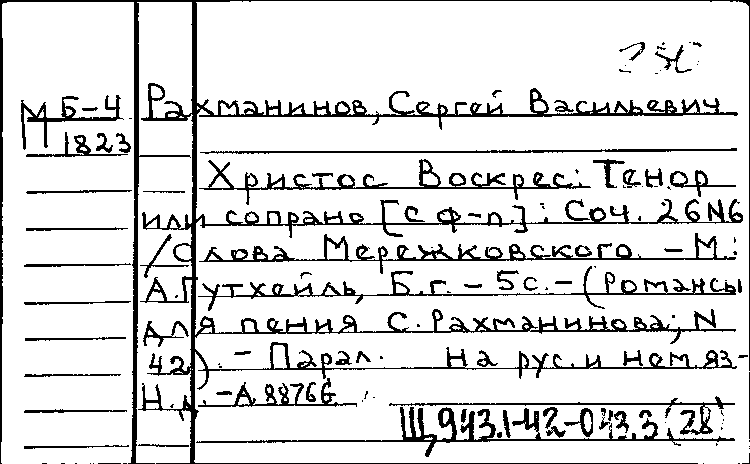 250
М Б-4 Рахманинов, Сергей Васильевич
1823
Христос Воскрес: Тенор
или сопрано [с ф-п.]: Соч. 26 N6
/Слова Мережковского. - М.:
А.Гутхейль, Б.г. - 5с. - (Романсы
для пения С. Рахманинова; N
42). - Парал. на рус. и нем. яз-
Н.д. - А 8876 G
Щ943.1-42-043.3(28)